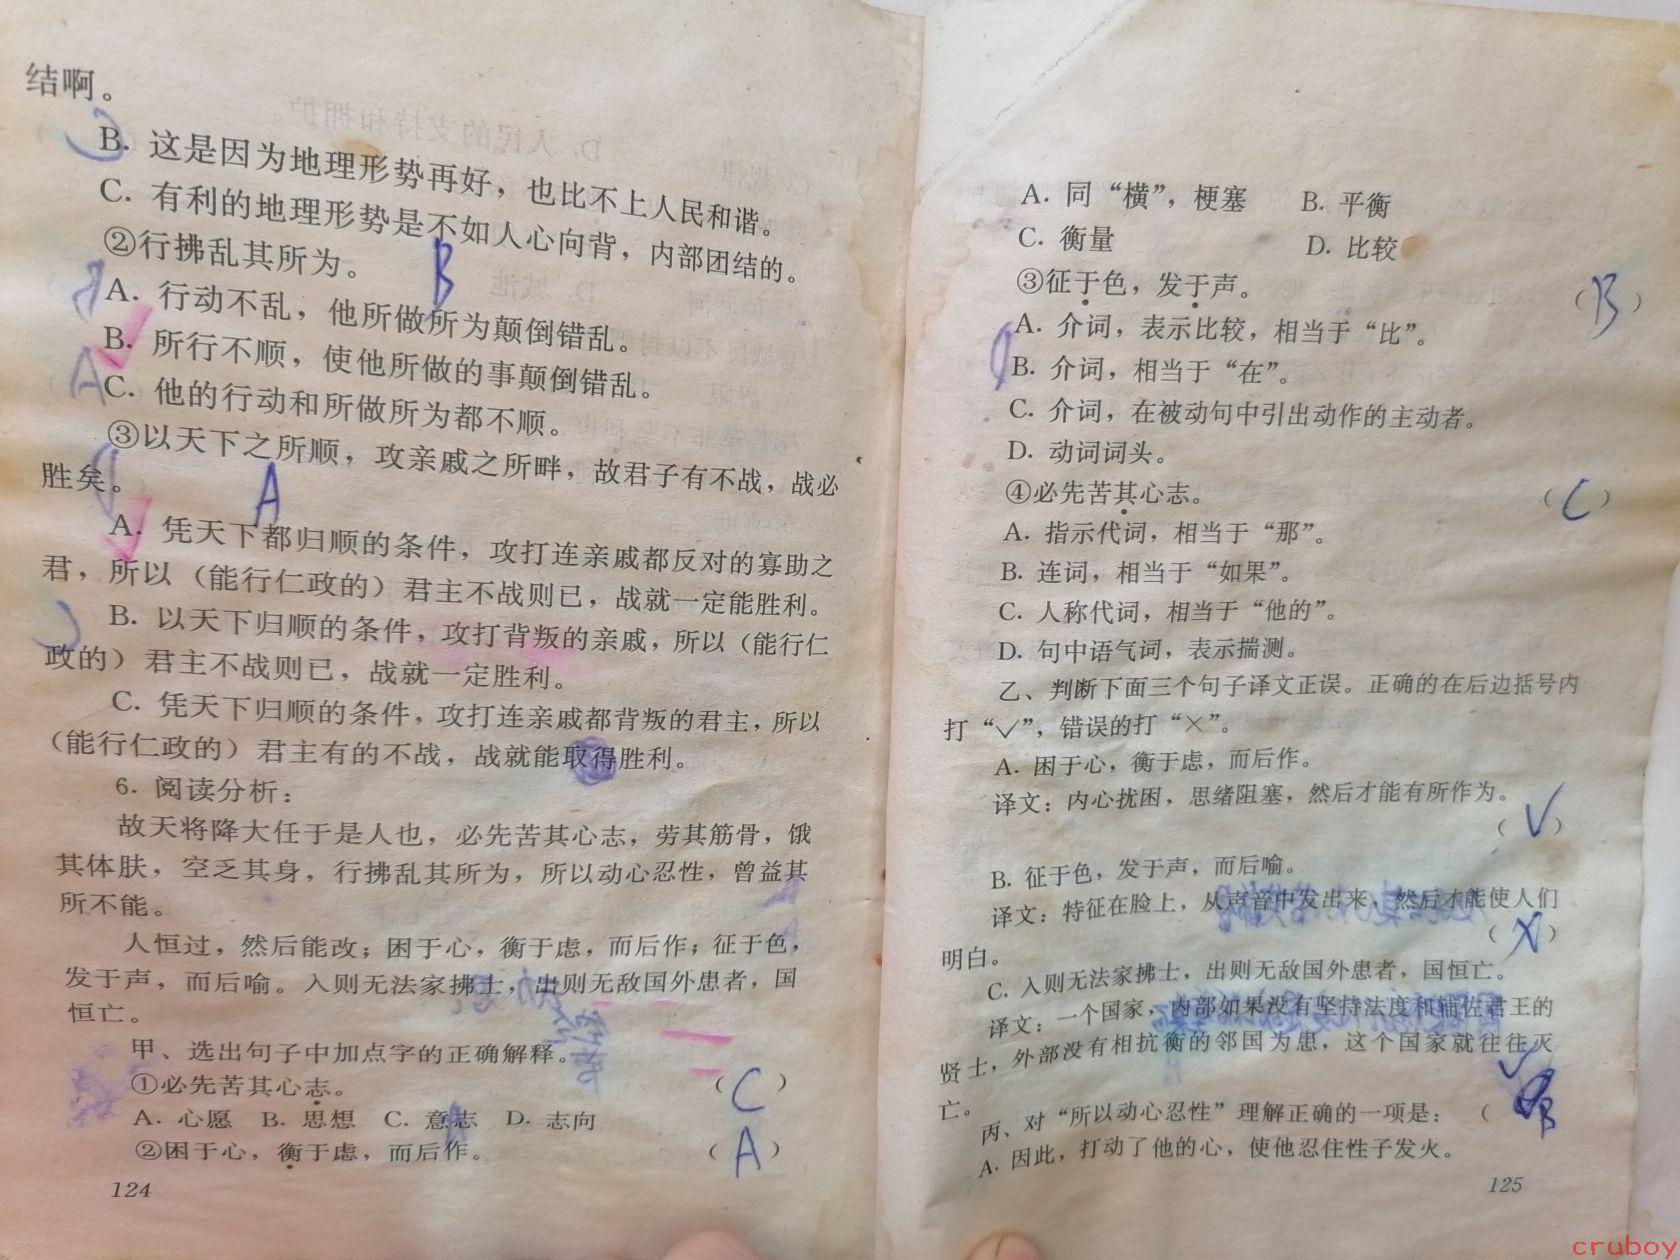 结啊。
B. 这是因为地理形势再好，也比不上人民和谐。
C. 有利的地理形势是不如人心向背，内部团结的。
②行拂乱其所为。
B
A. 行动不乱，他所做所为颠倒错乱。
B. 所行不顺，使他所做的事颠倒错乱。
A
C. 他的行动和所做所为都不顺。
③以天下之所顺，攻亲戚之所畔，故君子有不战，战必
胜矣。
A
A. 凭天下都归顺的条件，攻打连亲戚都反对的寡助之
君，所以（能行仁政的）君主不战则已，战就一定能胜利。
B. 以天下归顺的条件，攻打背叛的亲戚，所以（能行仁
政的）君主不战则已，战就一定胜利。
C. 凭天下归顺的条件，攻打连亲戚都背叛的君主，所以
（能行仁政的）君主有的不战，战就能取得胜利。
6. 阅读分析：
故天将降大任于是人也，必先苦其心志，劳其筋骨，饿
其体肤，空乏其身，行拂乱其所为，所以动心忍性，曾益其
所不能。
人恒过，然后能改；困于心，衡于虑，而后作；征于色，
发于声，而后喻。入则无法家拂士，出则无敌国外患者，国
恒亡。
甲、选出句子中加点字的正确解释。
①必先苦其心志。（C）
A. 心愿 B. 思想 C. 意志 D. 志向
②困于心，衡于虑，而后作。（A）
124
A. 同“横”，梗塞 B. 平衡
C. 衡量 D. 比较
③征于色，发于声。（B）
A. 介词，表示比较，相当于“比”。
B. 介词，相当于“在”。
C. 介词，在被动句中引出动作的主动者。
D. 动词词头。
④必先苦其心志。（C）
A. 指示代词，相当于“那”。
B. 连词，相当于“如果”。
C. 人称代词，相当于“他的”。
D. 句中语气词，表示揣测。
乙、判断下面三个句子译文正误。正确的在后边括号内
打“✓”，错误的打“×”。
A. 困于心，衡于虑，而后作。
译文：内心扰困，思绪阻塞，然后才能有所作为。
（✓）
B. 征于色，发于声，而后喻。
译文：特征在脸上，从声音中发出来，然后才能使人们
明白。（×）
C. 入则无法家拂士，出则无敌国外患者，国恒亡。
译文：一个国家，内部如果没有坚持法度和辅佐君王的
贤士，外部没有相抗衡的邻国为患，这个国家就往往灭
亡。✓
丙、对“所以动心忍性”理解正确的一项是：（B
A. 因此，打动了他的心，使他忍住性子发火。
125
cruboy